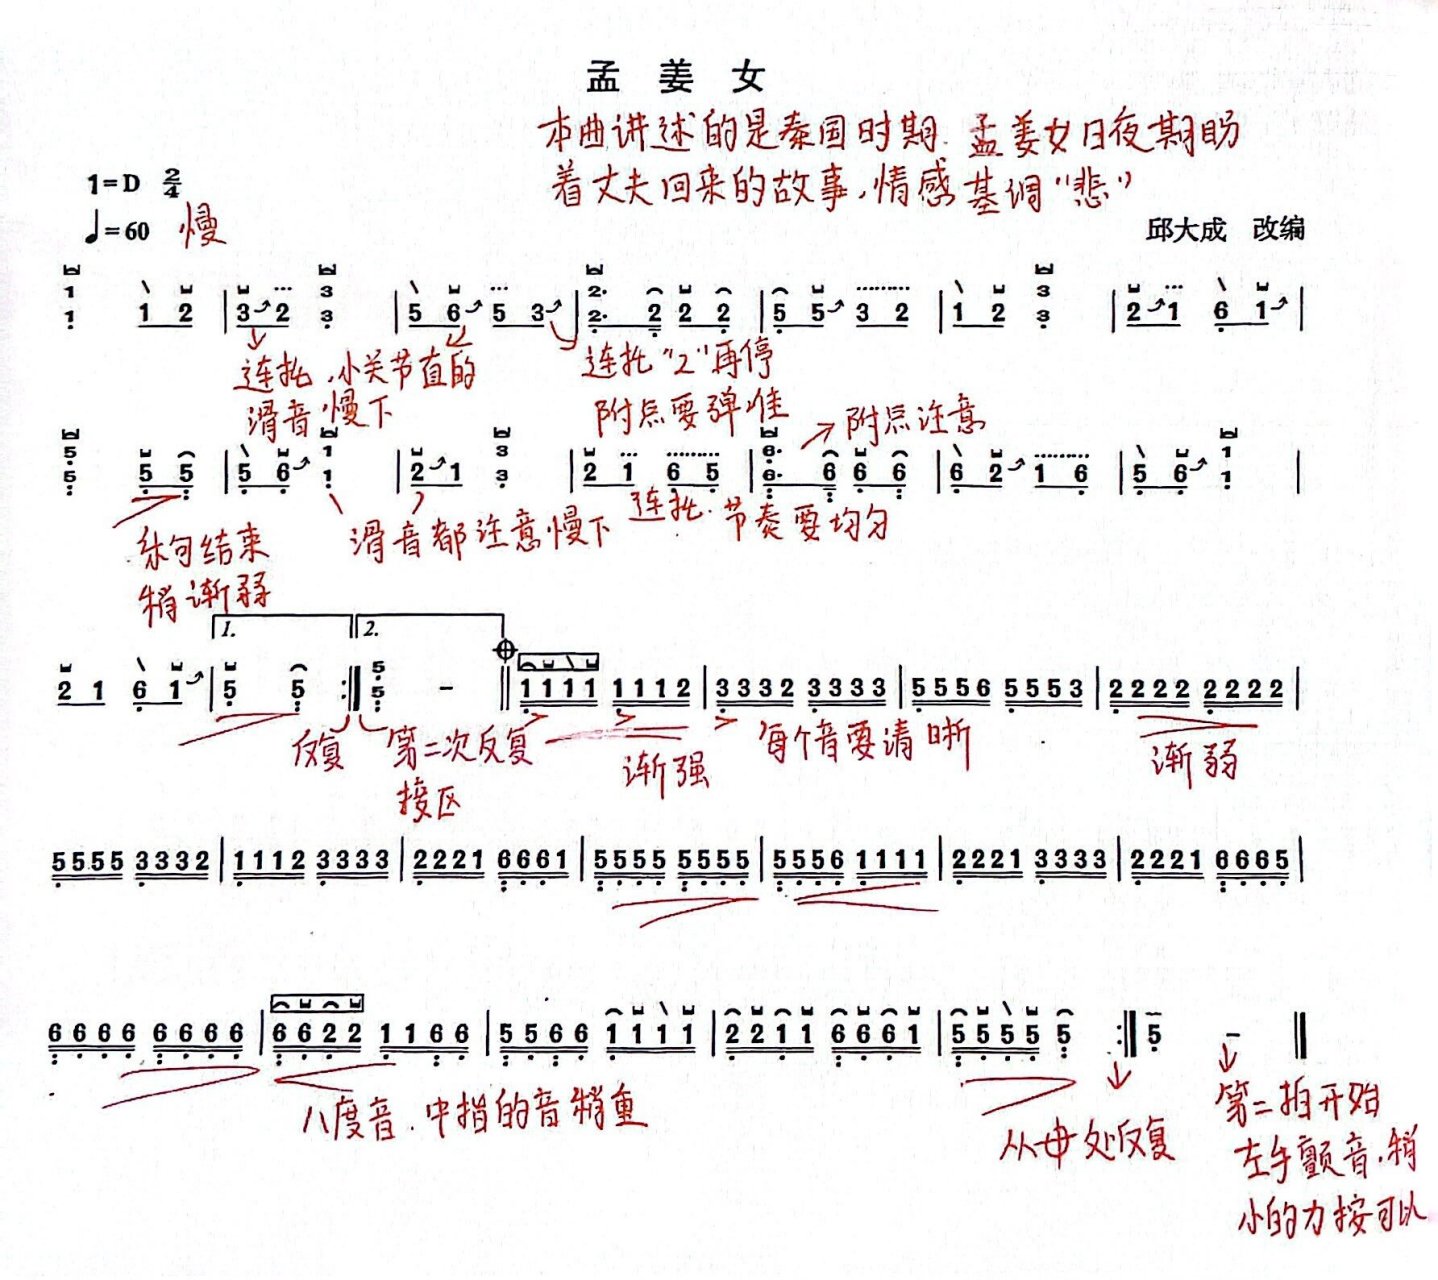 孟 姜 女
本曲讲述的是秦国时期.孟姜女日夜期盼
着丈夫回来的故事,情感基调"悲"
1=D 2/4
♩=60 慢
邱大成 改编
1 1 1 2 | 3 2 3 3 | 5 6 5 3 | 2· 2· 2 2 2 | 5 5 3 2 | 1 2 3 3 | 2 1 6 1 |
连托,小关节直的
滑音慢下
连托"2"再停
附点要弹准
附点注意
5· 5· 5 5 | 5 6 1 1 | 2 1 3 3 | 2 1 6 5 | 6· 6· 6 6 6 | 6 2 1 6 | 5 6 1 1 |
乐句结束
稍渐弱
滑音都注意慢下
连托.节奏要均匀
2 1 6 1 | 1. 5 5 :|| 2. 5 5 – || 1111 1112 | 3332 3333 | 5556 5553 | 2222 2222 |
反复
第二次反复
接区
渐强
每个音要清晰
渐弱
5555 3332 | 1112 3333 | 2221 6661 | 5555 5555 | 5556 1111 | 2221 3333 | 2221 6665 |
6666 6666 | 6622 1166 | 5566 1111 | 2211 6661 | 5555 5 :|| 5 – ||
八度音.中指的音稍重
从中处反复
第二拍开始
左手颤音,稍
小的力按可以